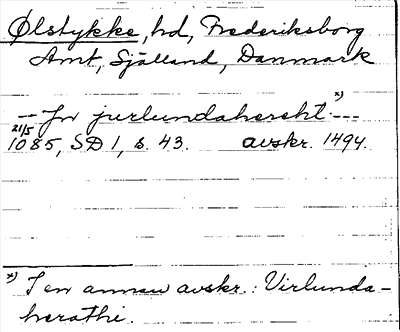 Ølstykke, hd, Frederiksborg
Amt, Själland, Danmark
-- Jn jurlundahæreht x) ---
21/5
1085, SD 1, s. 43. avskr. 1494.
x) I en annan avskr.: Virlunda-
herathe.